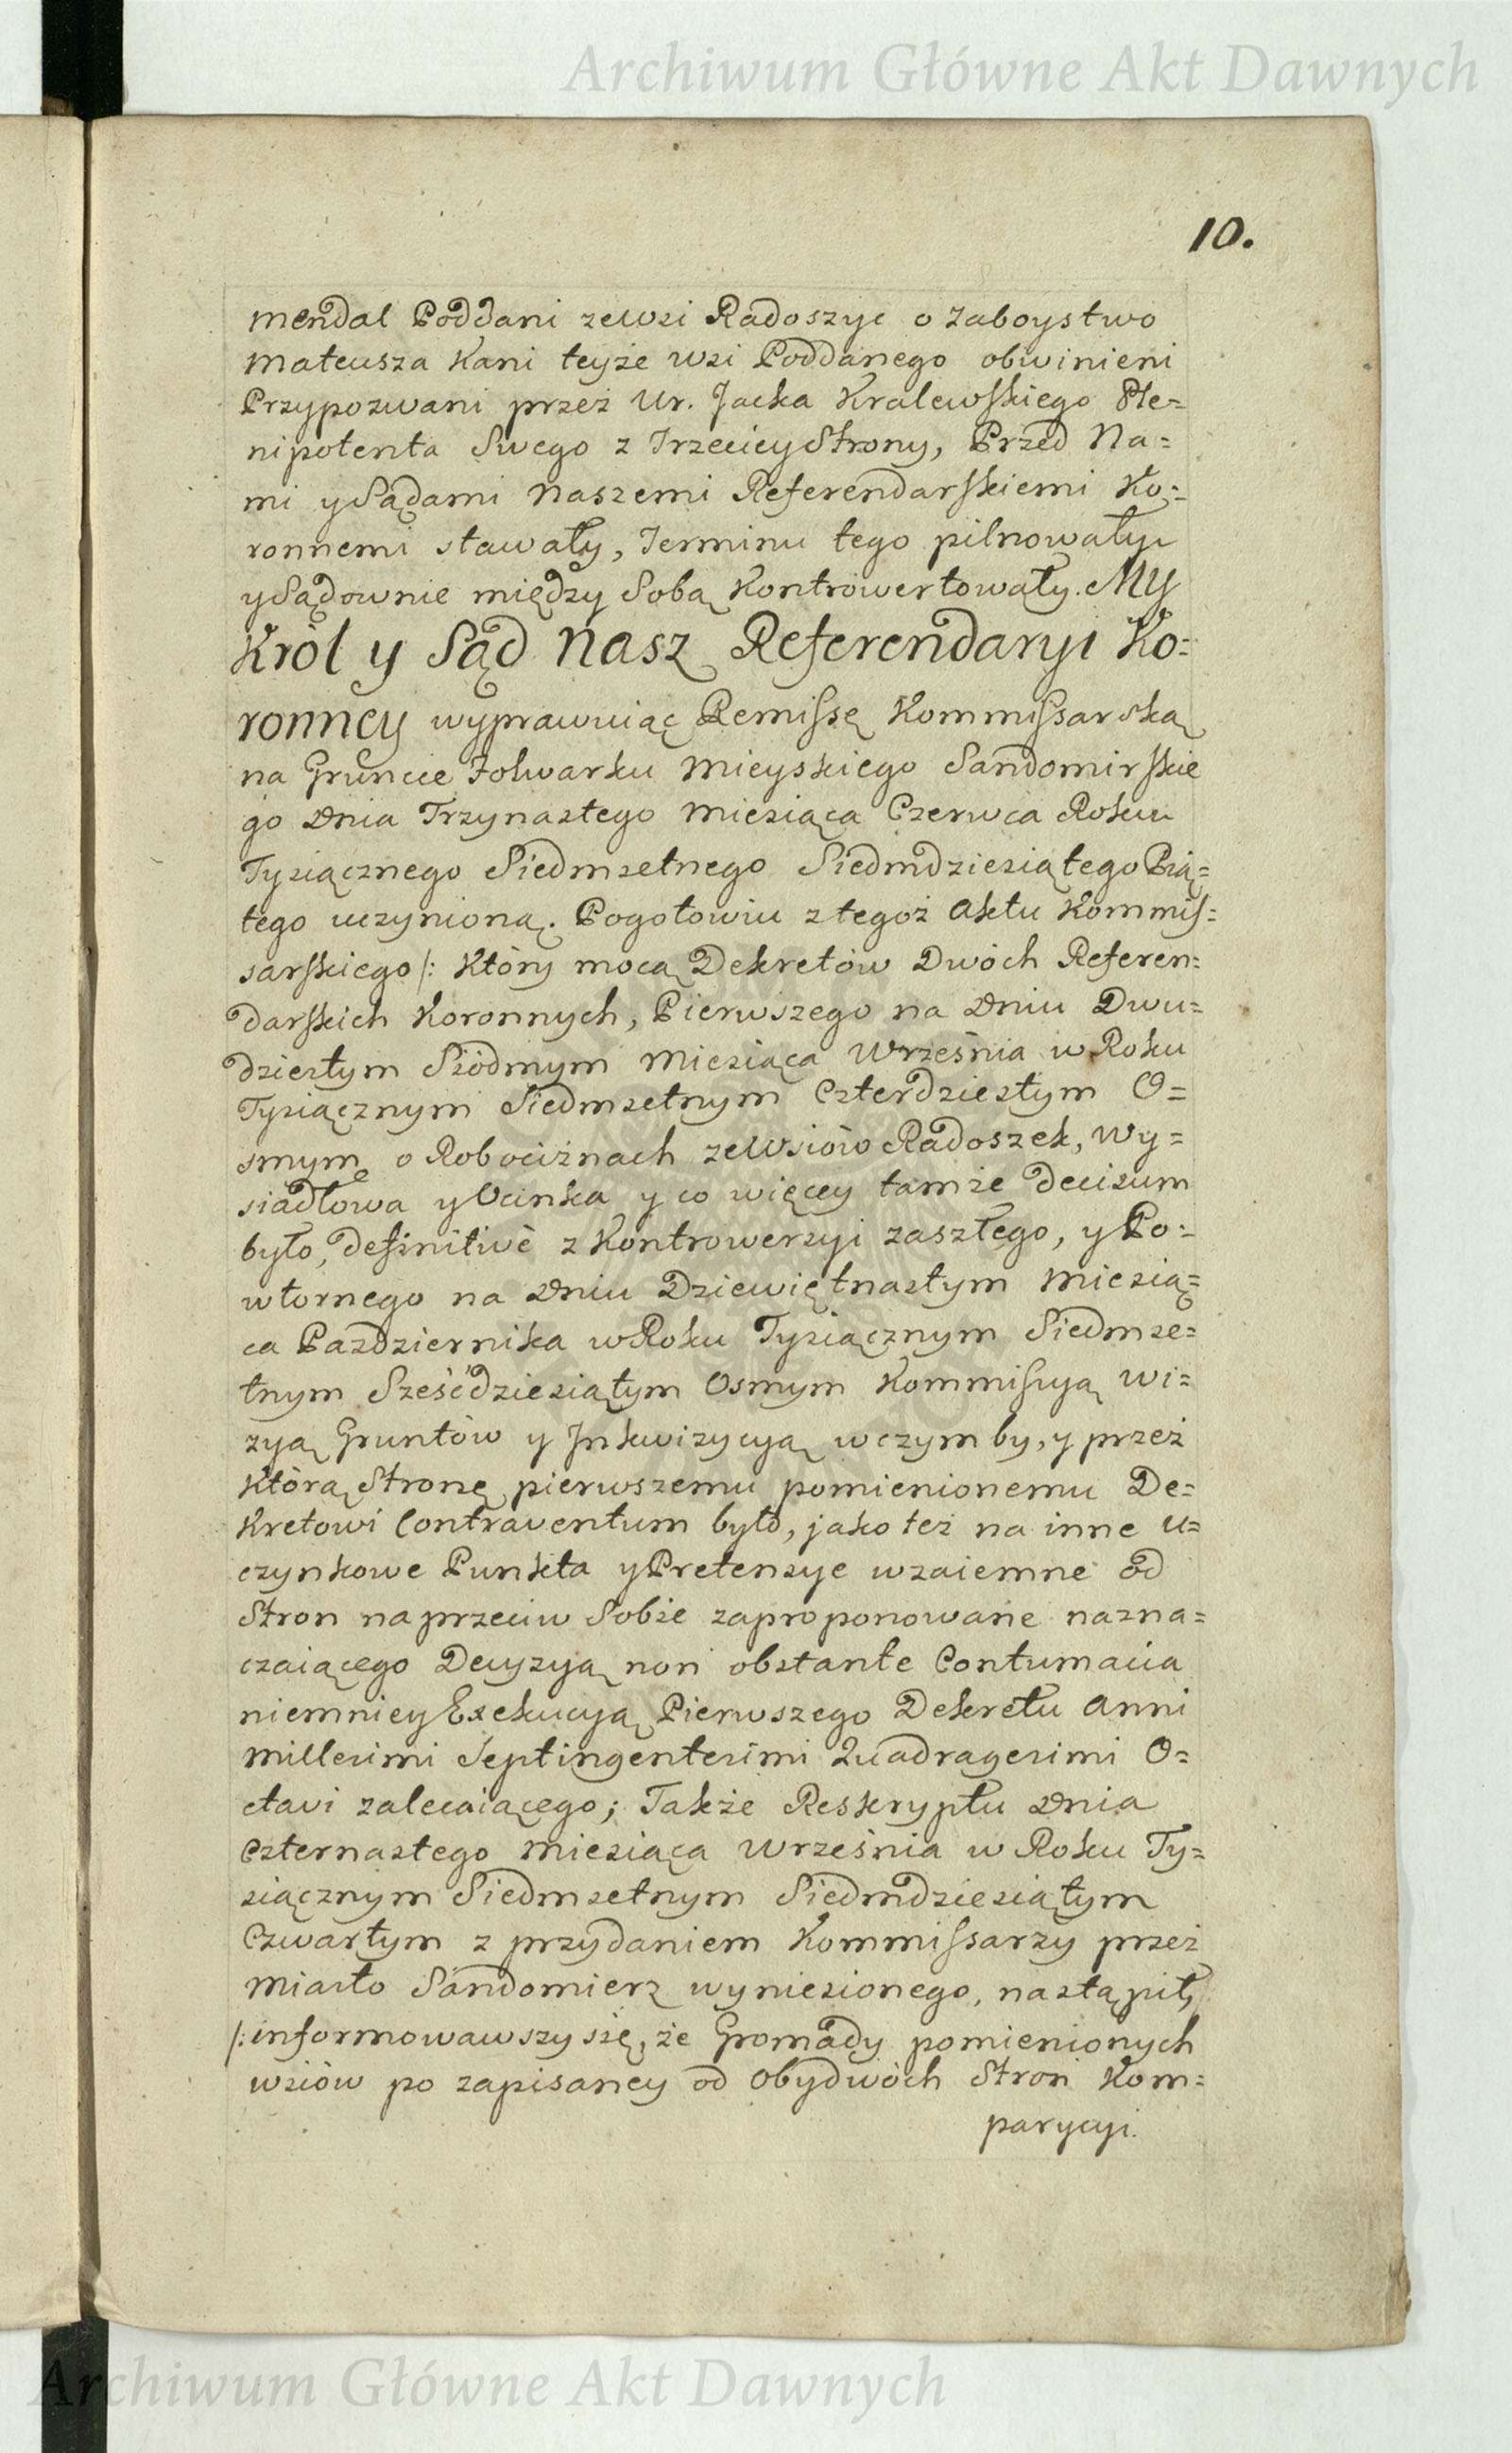 Archiwum Główne Akt Dawnych
10.
mendal Poddani ze wsi Radoszyc o Zaboystwo
Mateusza Kani teyże wsi Poddanego obwinieni
Przypozwani przez Ur. Jacka Kralewskiego Ple=
nipotenta Swego z Trzeciey Strony, Przed Na=
mi y Sądami Naszemi Referendarskiemi Ko=
ronnemi stawały, Terminu tego pilnowały
y Sądownie między Sobą Kontrowertowały. My
Król y Sąd Nasz Referendaryi Ko=
ronney wyprawuiąc Remissę Kommissarską
na Gruncie Folwarku Mieyskiego Sandomirskie
go Dnia Trzynastego Miesiąca Czerwca Roku
Tysiącznego Siedmsetnego Siedmdziesiątego Pią=
tego uczynioną. Pogotowiu z tegoż Aktu Kommis=
sarskiego /: Który mocą Dekretów Dwóch Referen=
darskich Koronnych, Pierwszego na Dniu Dwu=
dziestym Siódmym Miesiąca Września w Roku
Tysiącznym Siedmsetnym Czterdziestym O=
smym o Robociznach ze Wsiów Radoszek, Wy=
siadłowa y Ocinka y co więcey tamże Decisum
było, definitivè z Kontrowersyi zaszłego, y Po=
wtornego na Dniu Dziewiętnastym Miesią=
ca Pazdziernika w Roku Tysiącznym Siedmse=
tnym Sześćdziesiątym Osmym Kommissyą Wi=
zyą Gruntów y Inkwizycyą w czym by, y przez
Którą Stronę pierwszemu pomienionemu De=
kretowi Contraventum było, jako też na inne u=
czynkowe Punkta y Pretensye wzaiemne od
Stron naprzeciw Sobie zaproponowane nazna=
czaiącego Decyzyą non obstante Contumacia
niemniey Exekucyą Pierwszego Dekretu Anni
Millesimi Septingentesimi Quadragesimi O=
ctavi zalecaiącego; Także Reskryptu Dnia
Czternastego Miesiąca Września w Roku Ty=
siącznym Siedmsetnym Siedmdziesiątym
Czwartym z przydaniem Kommissarzy przez
Miasto Sandomierz wyniesionego, nastąpił,
/: informowawszy się, że Gromady pomienionych
wsiów po zapisaney od Obydwóch Stron Kom=
parycyi.
Archiwum Główne Akt Dawnych